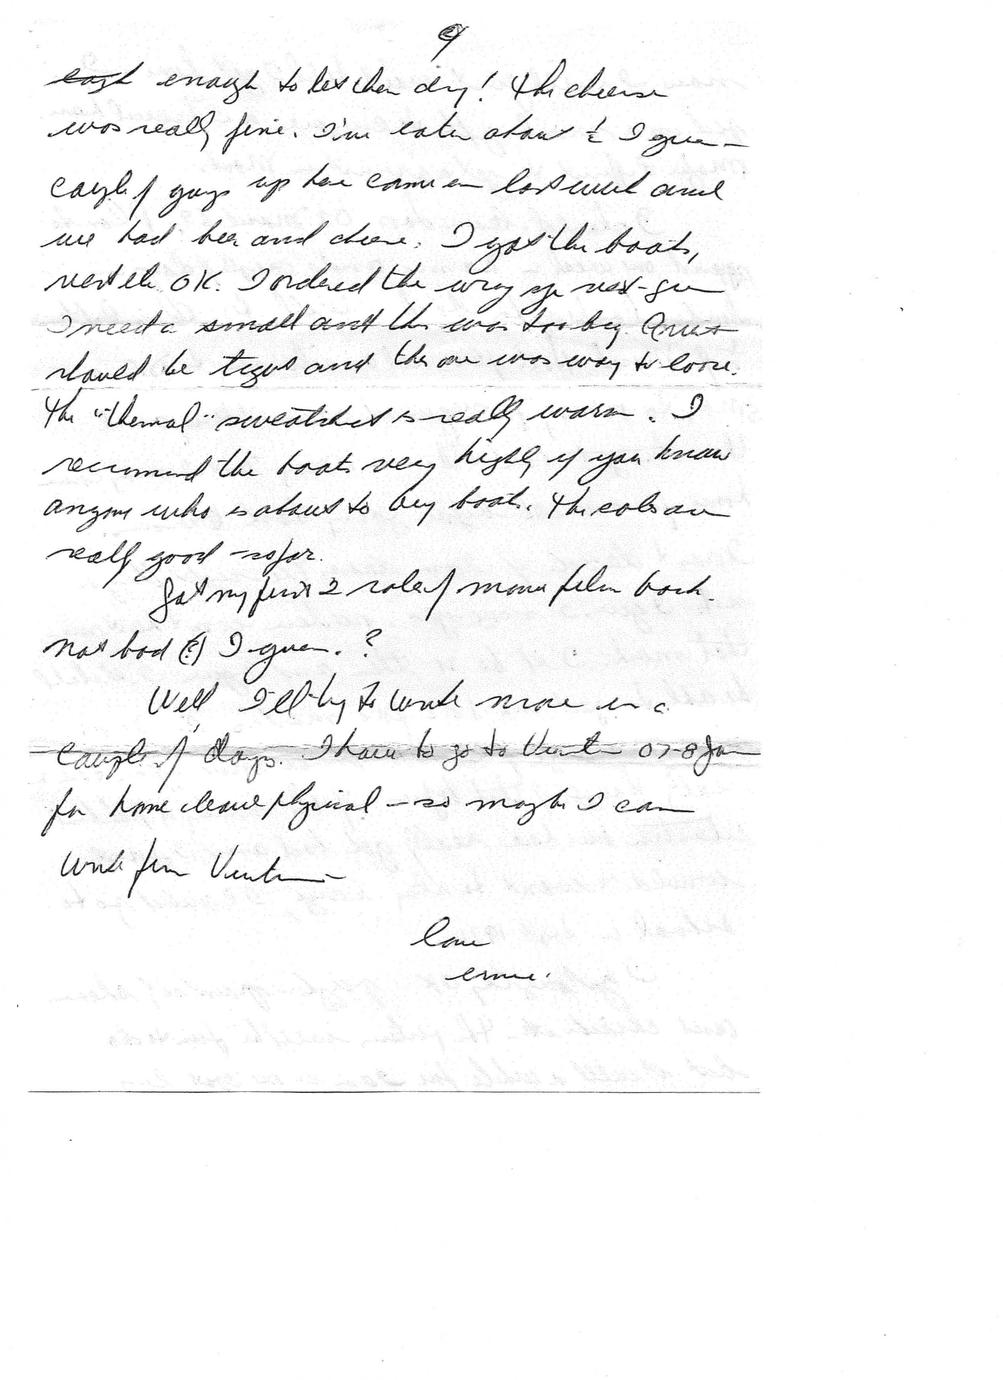 enough to let them dry! The cheese
was really fine. I've eaten about ½ I guess –
couple of guys up here came in last week and
we had beer and cheese. I got the boots,
vest etc OK. I ordered the wrong size vest – guess
I need a small and this was too big.
should be tight and this one was way to loose.
The "thermal" sweatshirt is really warm. I
recommend the boots very highly if you know
anyone who is about to buy boots. The soles are
really good – so far.
Got my first 2 roles of movie film back.
not bad (?) I guess. ?
Well I'll try to write more in a
couple of days. I have to go to 07-8 Jan
for home leave physical – so maybe I can
write from
love
ernie.